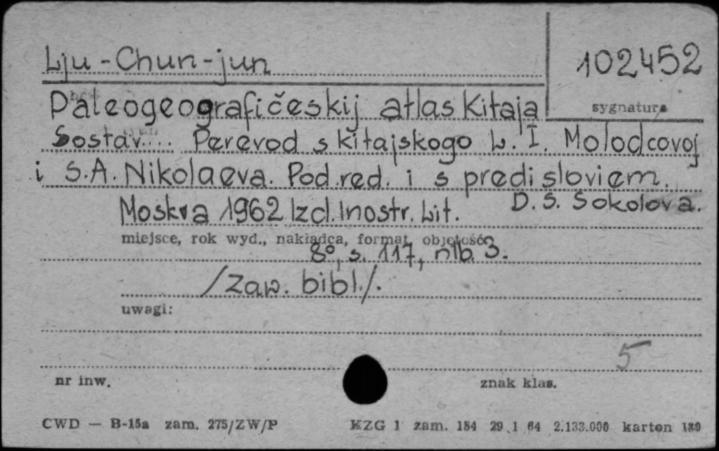 Lju-Chun-jun
102452
sygnatura
Paleogeografičeskij atlas Kitaja
Sostav... Perevod s kitajskogo L. I. Molodcovoj
i S.A. Nikolaeva. Pod.red. i s predisloviem.
D.S. Sokolova.
Moskva 1962 Izd.Inostr.Lit.
miejsce, rok wyd., nakładca, format, objętość
8°, s. 117, nlb 3.
/Zaw. bibl./.
uwagi:
5
nr inw.
znak klas.
CWD — B-15a zam. 275/ZW/P KZG 1 zam. 184 29.1 64 2.133.000 karton 180